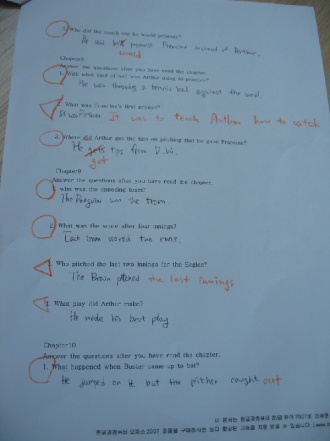 3. Who did the coach say he would promote?
He said promote Francine instead of Arthur.
would
Chapter8
Answer the questions after you have read the chapter.
1. With what kind of ball was Arthur using to practice?
He was throwing a tennis ball against the wall.
2. What was Francine's first project?
It was to teach Arthur how to catch
3. Where did Arthur get the tips on pitching that he gave Francine?
He gets tips from D.W.
got
Chapter9
Answer the questions after you have read the chapter.
1. who was the opposing team?
The Penguins was the team.
2. What was the score after four innings?
Each team scored two runs.
3. Who pitched the last two innings for the Eagles?
The Brain pitched the last innings
4. What play did Arthur make?
He made his best play.
Chapter10
Answer the questions after you have read the chapter.
1. What happened when Buster came up to bat?
He jumped on it but the pitcher caught out